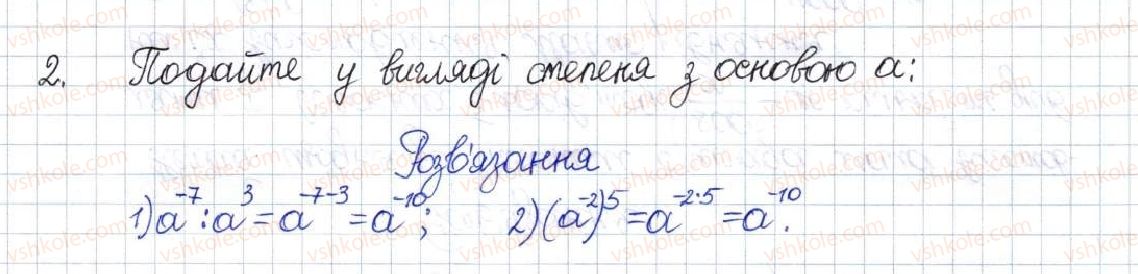 2. Подайте у вигляді степеня з основою a:
Розв'язання
1) a⁻⁷ : a³ = a⁻⁷⁻³ = a⁻¹⁰; 2) (a⁻²)⁵ = a⁻²·⁵ = a⁻¹⁰.